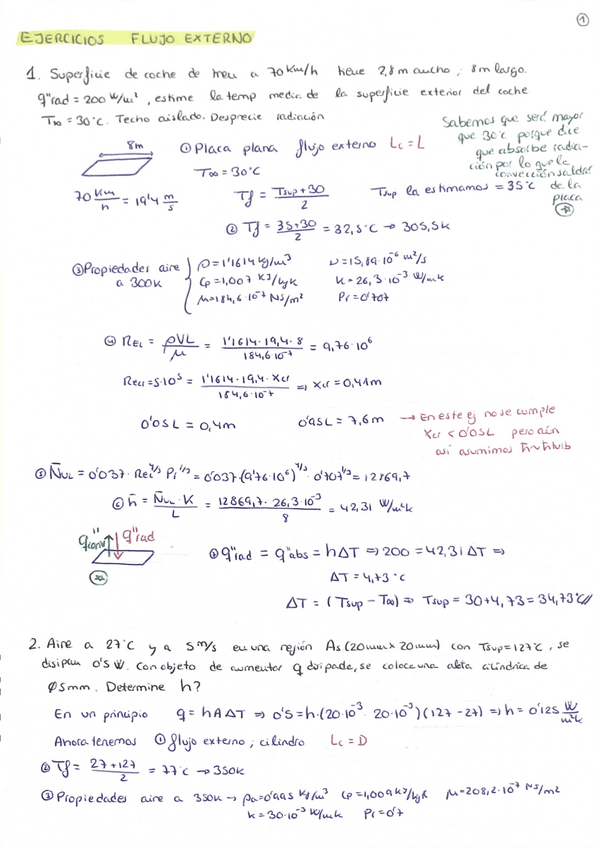 1
EJERCICIOS FLUJO EXTERNO
1. Superficie de coche de tren a 70 Km/h tiene 2,8 m ancho; 8m largo.
q"rad = 200 W/m², estime la temp media de la superficie exterior del coche
T∞ = 30°C. Techo aislado. Desprecie radiación
Sabemos que será mayor
que 30°C porque dice
que absorbe radia-
ción por lo que la
convección saldrá
de la
placa
8m
① Placa plana flujo externo Lc = L
T∞ = 30°C
70 Km/h = 19'4 m/s
Tf = (Tsup + 30)/2
Tsup la estimamos = 35°C
② Tf = (35+30)/2 = 32,5°C → 305,5K
③ Propiedades aire
a 300K
ρ = 1'1614 kg/m³ ν = 15,89·10⁻⁶ m²/s
Cp = 1,007 KJ/kgK K = 26,3·10⁻³ W/mK
μ = 184,6·10⁻⁷ Ns/m² Pr = 0'707
④ ReL = ρVL/μ = (1'1614·19,4·8)/(184,6·10⁻⁷) = 9,76·10⁶
Recr = 5·10⁵ = (1'1614·19,4·Xcr)/(184,6·10⁻⁷) ⇒ Xcr = 0,41m
0'05L = 0,4m 0'95L = 7,6m
→ En este ej no se cumple
Xcr < 0'05L pero aún
así asumimos
⑤ N̄uL = 0'037·ReL^4/5 Pr^1/3 = 0'037·(9'76·10⁶)^4/5·0'707^1/3 = 12869,7
⑥ h̄ = (N̄uL·K)/L = (12869,7·26,3·10⁻³)/8 = 42,31 W/m²K
q"conv q"rad
q"rad = q"abs = hΔT ⇒ 200 = 42,31 ΔT ⇒
ΔT = 4,73°C
ΔT = (Tsup - T∞) ⇒ Tsup = 30 + 4,73 = 34,73°C//
2. Aire a 27°C y a 5 m/s en una región As (20mm x 20mm) con Tsup = 127°C, se
disipan 0'5 W. Con objeto de aumentar q disipada, se coloca una aleta cilíndrica de
Ø5mm. Determine h?
En un principio q = hAΔT ⇒ 0'5 = h·(20·10⁻³·20·10⁻³)(127-27) ⇒ h = 0'125 W/m²K
Ahora tenemos ① flujo externo; cilindro Lc = D
② Tf = (27+127)/2 = 77°C → 350K
③ Propiedades aire a 350K → ρa = 0'995 kg/m³ Cp = 1,009 KJ/kgK μ = 208,2·10⁻⁷ Ns/m²
K = 30·10⁻³ W/mK Pr = 0'7